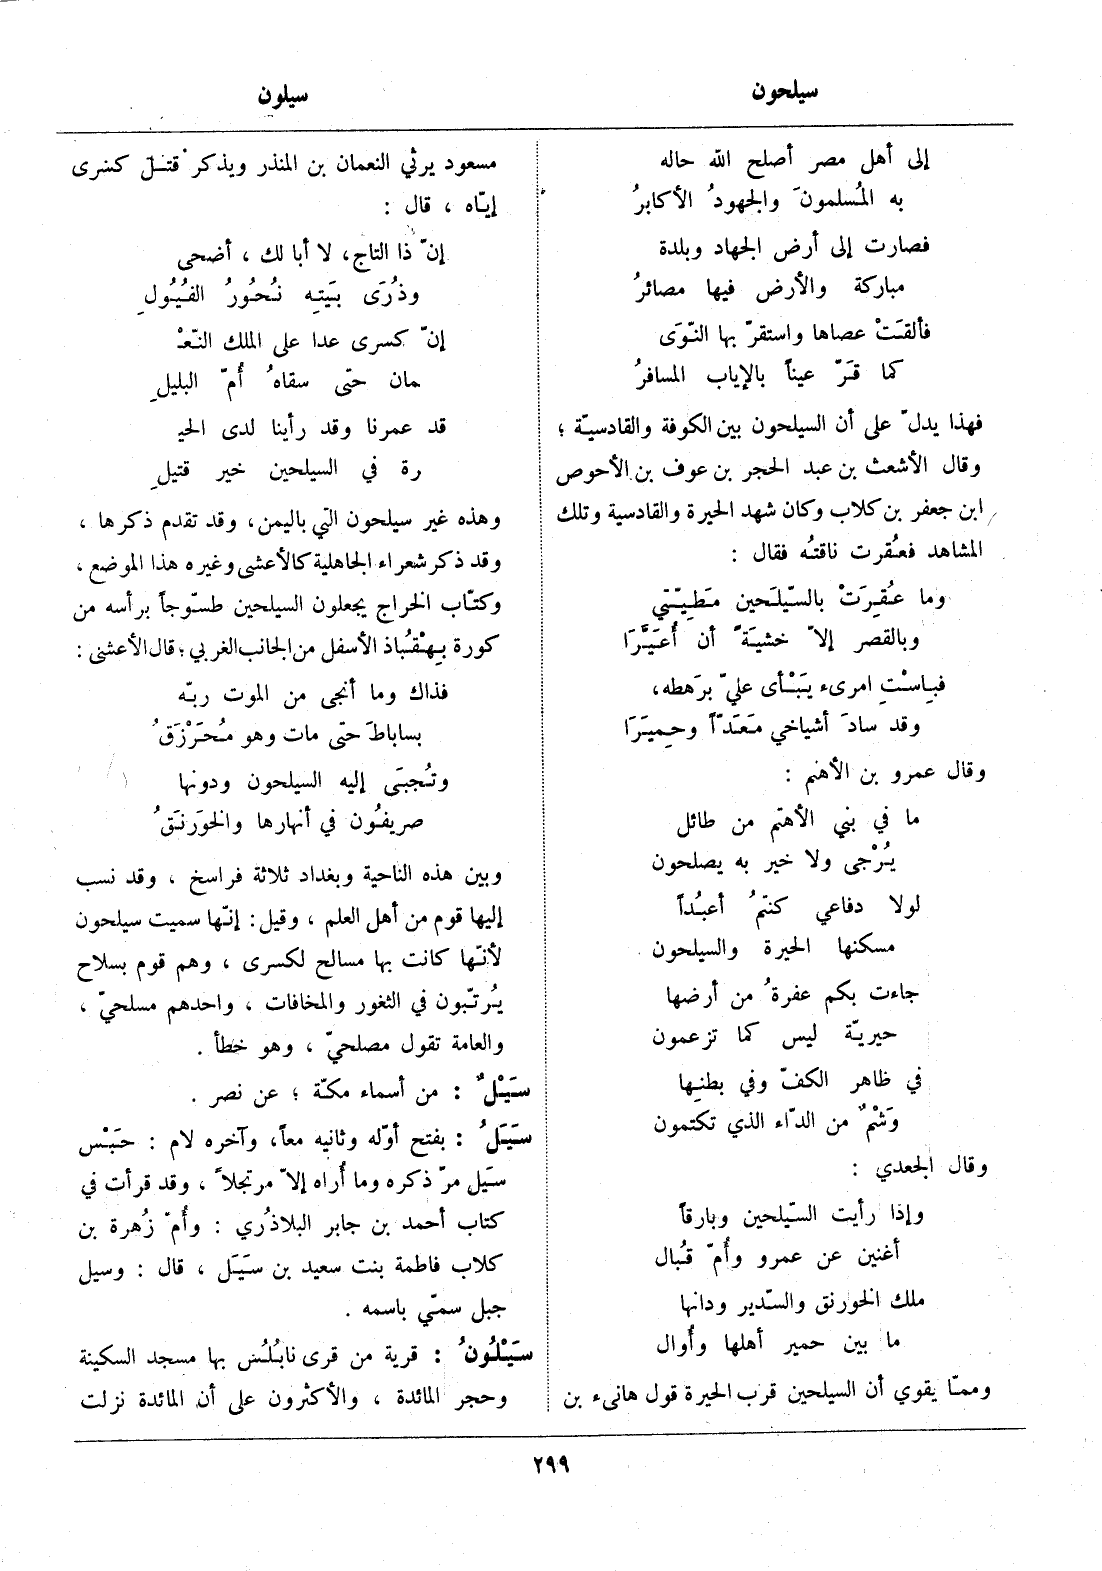 سيلحون
سيلون
إلى أهل مصر أصلح الله حاله
به المُسلمونَ والجهودُ الأكابرُ
فصارت إلى أرض الجهاد وبلدة
مباركة والأرض فيها مصائرُ
فألقتْ عصاها واستقرّ بها النّوَى
كما قَرّ عيناً بالإياب المسافرُ
فهذا يدلّ على أن السيلحون بين الكوفة والقادسيّة ؛
وقال الأشعث بن عبد الحجر بن عوف بن الأحوص
ابن جعفر بن كلاب وكان شهد الحيرة والقادسية وتلك
المشاهد فعُقرت ناقتُه فقال :
وما عُقِرَتْ بالسّيلَحين مَطِيّتي
وبالقصر إلاّ خشيَةً أن أُعَيَّرَا
فبِاستِ امرىء يَبْأى عليّ برَهطه،
وقد سادَ أشياخي مَعَدّاً وحِميَرَا
وقال عمرو بن الأهتم :
ما في بني الأهتم من طائل
يُرْجى ولا خير به يصلحون
لولا دفاعي كنتمُ أعبُداً
مسكنها الحيرة والسيلحون
جاءت بكم عفرةُ من أرضها
حيريّة ليس كما تزعمون
في ظاهر الكفّ وفي بطنِها
وَشْمٌ من الدّاء الذي تكتمون
وقال الجعدي :
وإذا رأيت السّيلحين وبارقاً
أغنين عن عمرو وأُمّ قُبال
ملك الخورنق والسّدير ودانها
ما بين حمير أهلها وأُوال
وممّا يقوي أن السيلحين قرب الحيرة قول هانىء بن
مسعود يرثي النعمان بن المنذر ويذكر قتل كسرى
إيّاه ، قال :
إنّ ذا التاج، لا أبا لك ، أضحى
وذُرَى بَيتِه نُحُورُ الفُيُولِ
إنّ كسرى عدا على الملك النّعْ
مان حتّى سقاهُ أُمّ البليلِ
قد عمرنا وقد رأينا لدى الحيـ
رة في السيلحين خير قتيلِ
وهذه غير سيلحون التي باليمن، وقد تقدم ذكرها ،
وقد ذكر شعراء الجاهلية كالأعشى وغيره هذا الموضع ،
وكتّاب الخراج يجعلون السيلحين طسّوجاً برأسه من
كورة بِهْقُباذ الأسفل من الجانب الغربي ؛ قال الأعشى :
فذاك وما أنجى من الموت ربّه
بساباطَ حتّى مات وهو مُحَرْزَقُ
وتُجبَى إليه السيلحون ودونها
صريفُون في أنهارها والخوَرنَقُ
وبين هذه الناحية وبغداد ثلاثة فراسخ ، وقد نسب
إليها قوم من أهل العلم ، وقيل : إنّها سميت سيلحون
لأنّها كانت بها مسالح لكسرى ، وهم قوم بسلاح
يُرتّبون في الثغور والمخافات ، واحدهم مسلحيّ ،
والعامة تقول مصلحيّ ، وهو خطأ .
سَيْلٌ : من أسماء مكّة ؛ عن نصر .
سَيَلُ : بفتح أوّله وثانيه معاً، وآخره لام : حَبْس
سَيَل مرّ ذكره وما أُراه إلاّ مرتجلاً ، وقد قرأت في
كتاب أحمد بن جابر البلاذُري : وأُمّ زُهرة بن
كلاب فاطمة بنت سعيد بن سَيَل ، قال : وسيل
جبل سمّي باسمه .
سَيْلُونُ : قرية من قرى نابُلُس بها مسجد السكينة
وحجر المائدة ، والأكثرون على أن المائدة نزلت
٢٩٩